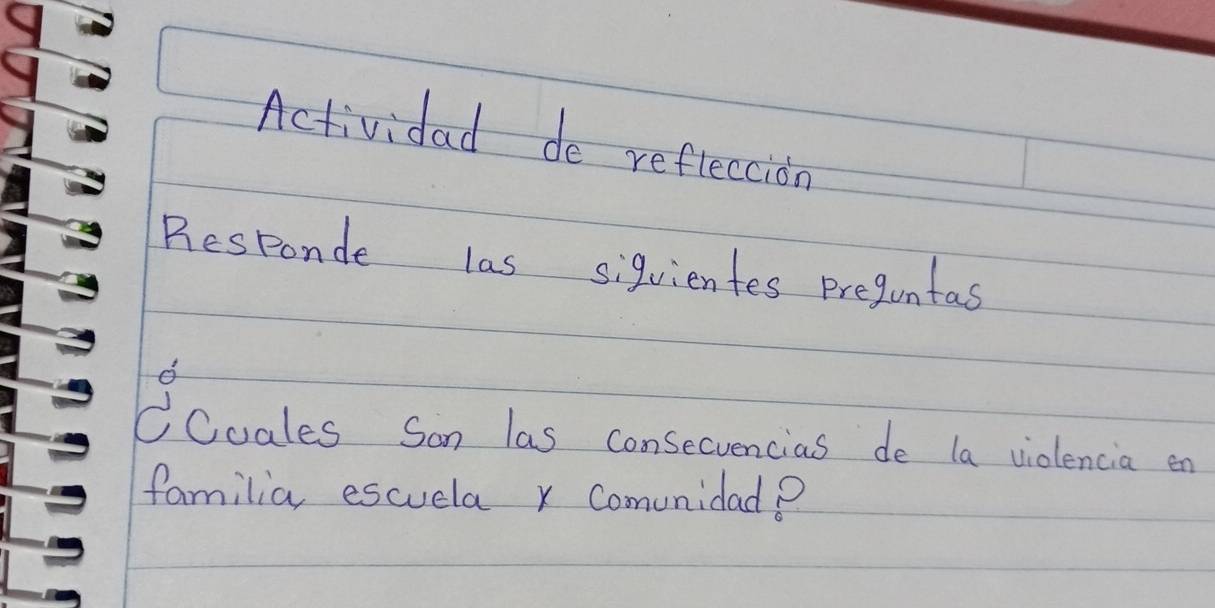 Actividad de reflección
Responde las siguientes preguntas
¿Cuales son las consecuencias de la violencia en
familia, escuela y comunidad?